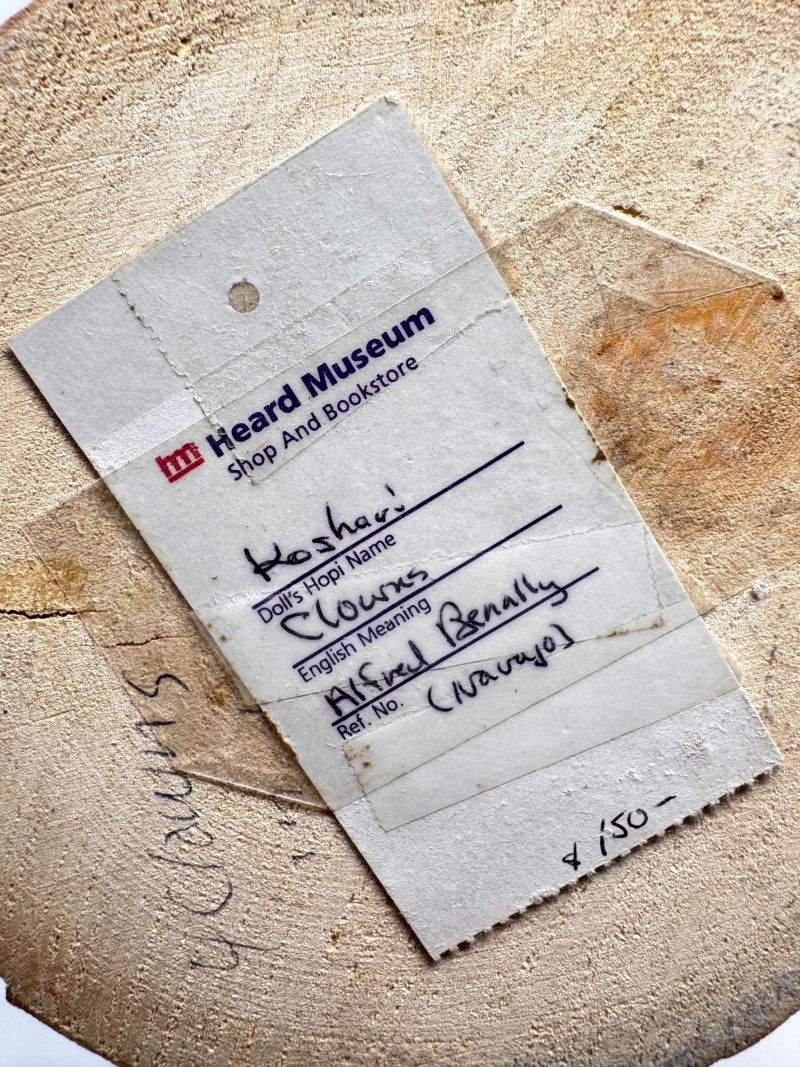 Heard Museum
Shop And Bookstore
Koshari
Doll's Hopi Name
Clowns
English Meaning
Alfred Benally
Ref. No.
(Navajo)
$150-
4 Clowns